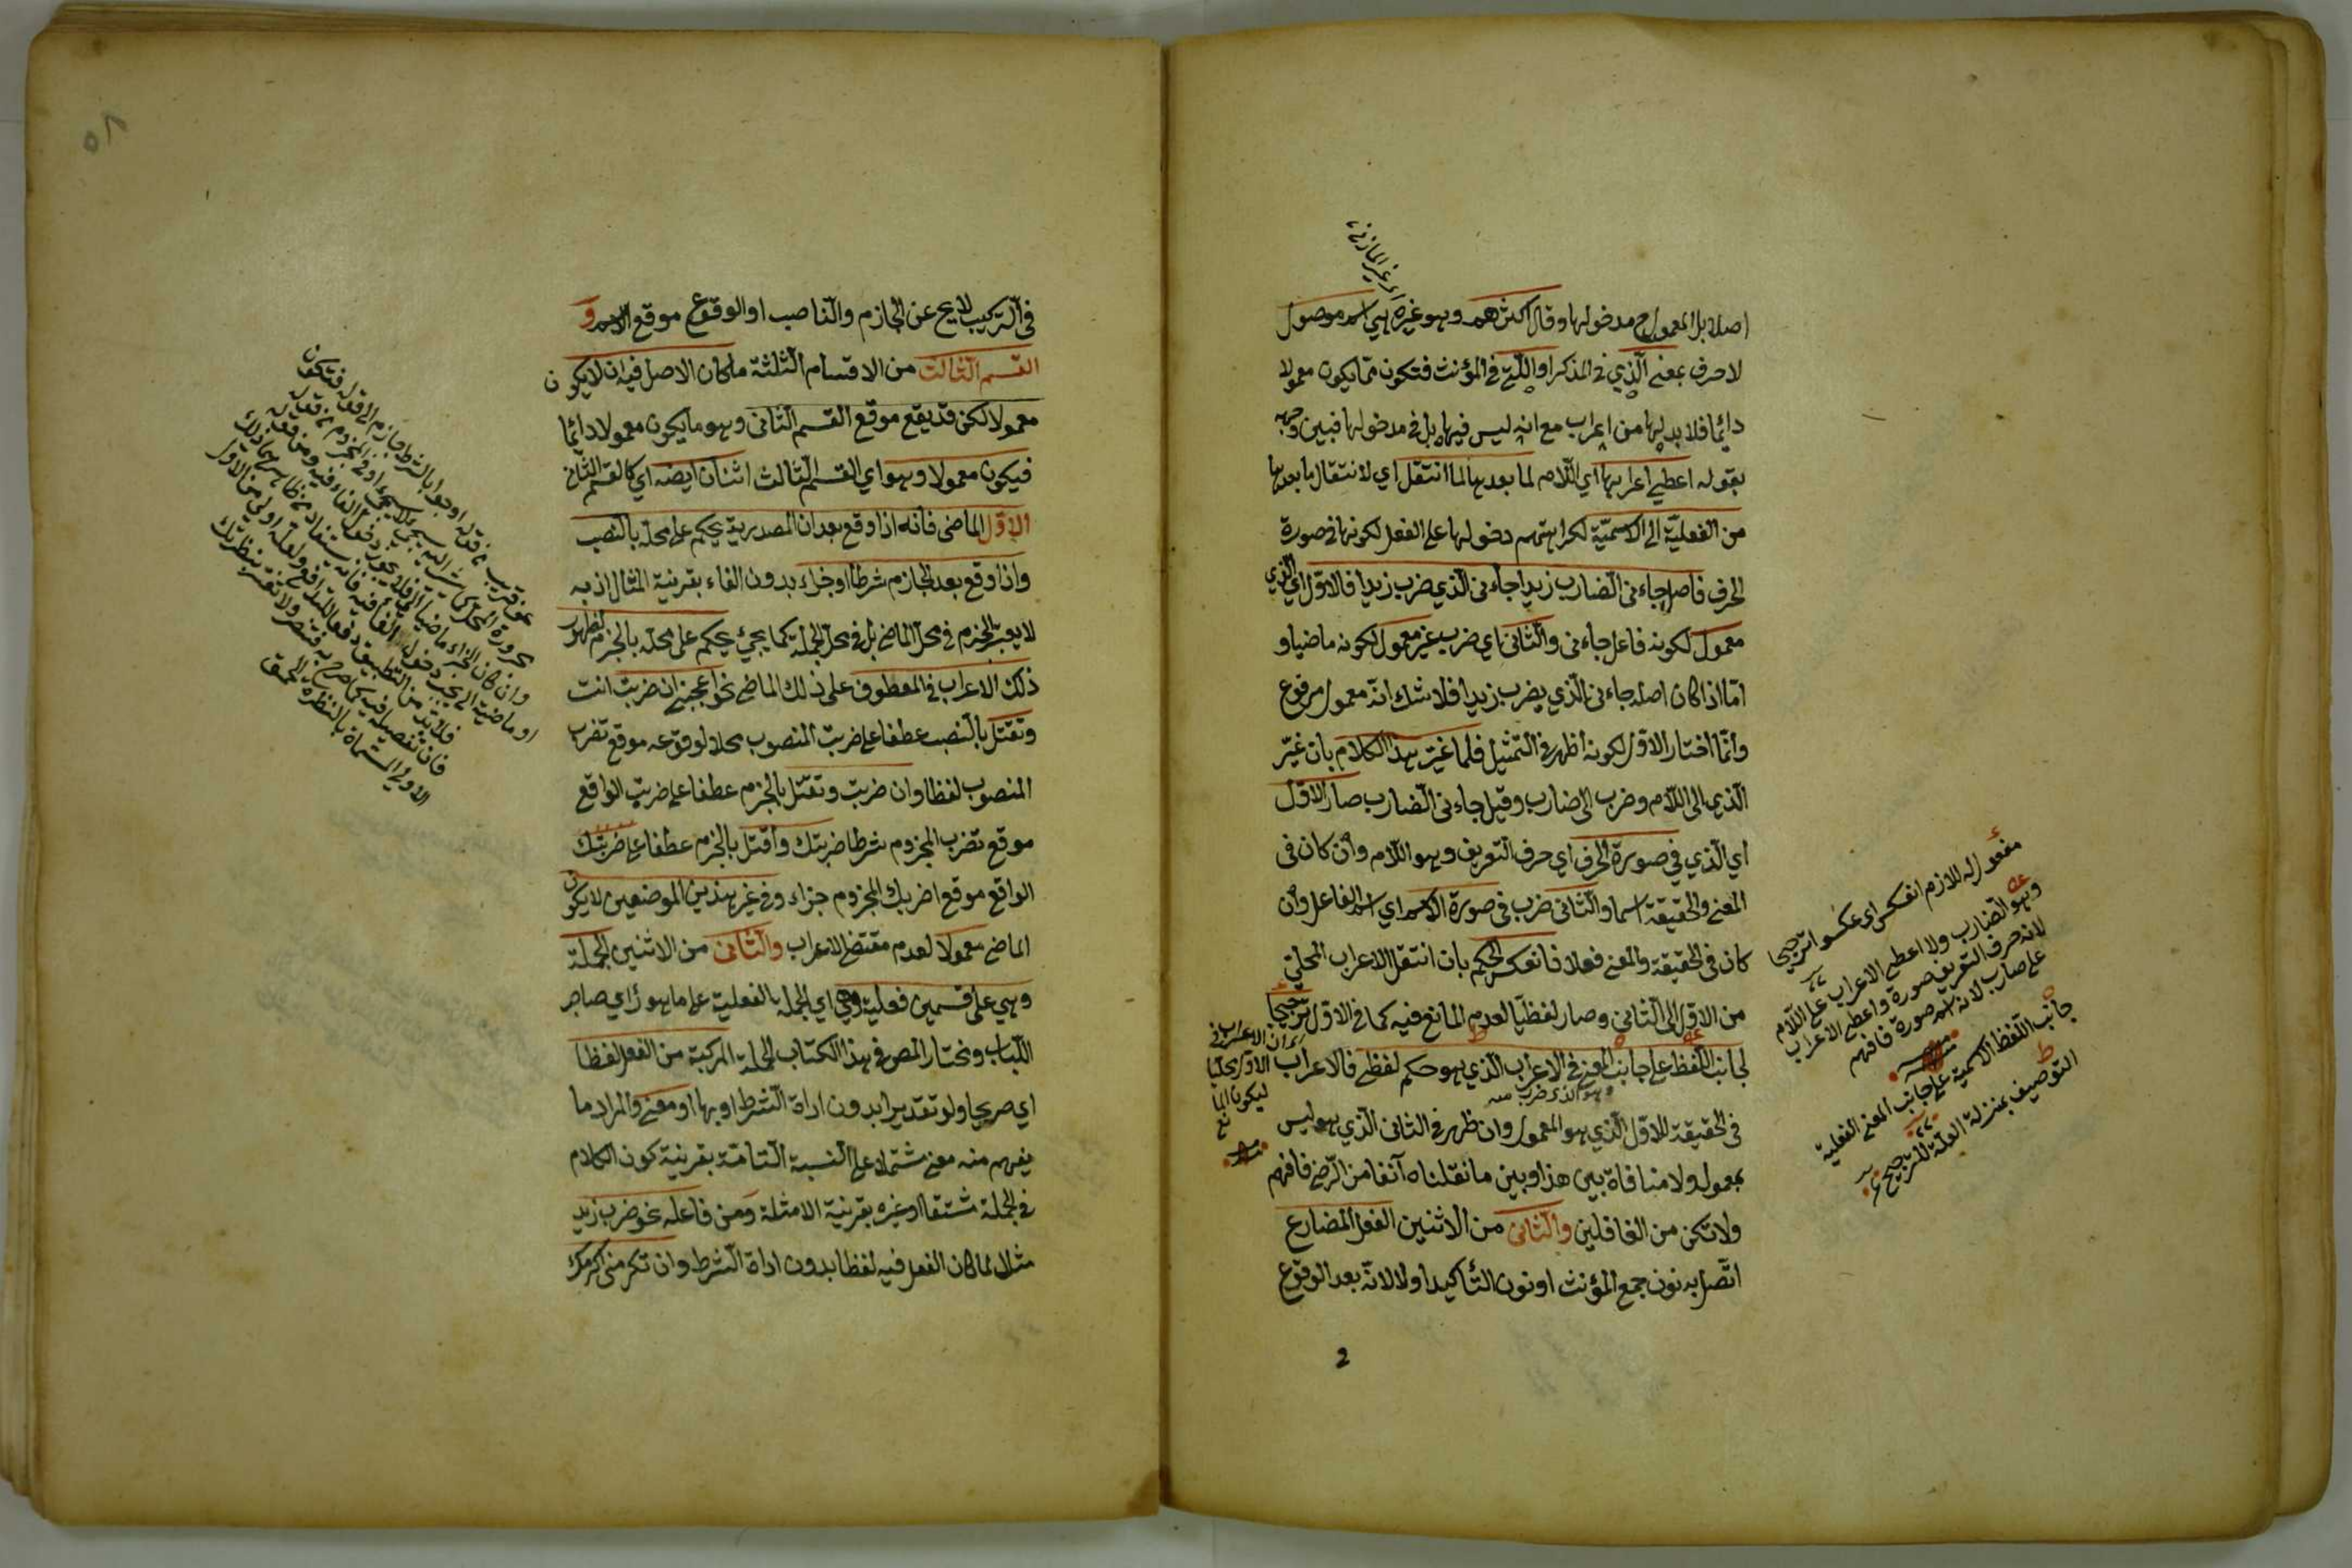 اصلا بل المعمول ح مدخولها وقال اكثرهم وهو غيره هي اسم موصول
لا حرف بمعنى الذي في المذكر او التي في المؤنث فتكون مما يكون معمولا
دائما فلا بد لها من اعراب مع انه ليس فيها بل في مدخولها فبين وجهه
بقوله اعطي اعرابها اي اللام لما بعدها لما انتقل اي لانتقال ما بعدها
من الفعلية الى الاسمية لكراهتهم دخولها على الفعل لكونها في صورة
الحرف فاصل جاءنى الضارب زيدا جاءنى الذي ضرب زيدا فالاول اي الذي
معمول لكونه فاعل جاءنى والثانى اي ضرب غير معمول لكونه ماضيا و
اما اذا كان اصله جاءنى الذي يضرب زيدا فلا شك انه معمول مرفوع
وانما اختار الاول لكونه اظهر في التمثيل فلما غير هذا الكلام بان غير
الذي الى اللام وضرب الى ضارب وقيل جاءنى الضارب صار الاول
اي الذي في صورة الحرف اي حرف التعريف وهو اللام وان كان فى
المعنى والحقيقة اسما والثانى ضرب فى صورة الاسم اي اسم الفاعل وان
كان فى الحقيقة والمعنى فعلا فانعكس الحكم بان انتقل الاعراب المحلي
من الاول الى الثانى وصار لفظيا لعدم المانع فيه كما في الاول ترجيحا
لجانب اللفظ على جانب المعنى في الاعراب الذي هو حكم لفظي فالاعراب
وهو الذي ضرب منه
فى الحقيقة للاول الذي هو المعمول وان ظهر في الثانى الذي هو ليس
بمعمول ولا منافاة بين هذا وبين ما نقلناه آنفا من الرضي فافهم
ولا تكن من الغافلين والثانى من الاثنين الفعل المضارع
اتصل به نون جمع المؤنث او نون التأكيد او لا لانه بعد الوقوع
اي غير المازني
اي ان الاعراب في
الاول محليا
ليكون المانع
مفعول له للازم انعكس اي عكسوا ترجيحا
وهو الضارب ولا اعطي الاعراب على اللام
لانه حرف التعريف صورة واعطي الاعراب
على ضارب لانه اسم صورة فافهم
جانب اللفظ الاسمية على جانب المعنى الفعلية
التوصيف بمنزلة العلة للترجيح
في التركيب لا يخ عن الجازم والناصب او الوقوع موقع الاسم و
القسم الثالث من الاقسام الثلثة ما كان الاصل فيه ان لا يكون
معمولا لكن قد يقع موقع القسم الثانى وهو ما يكون معمولا دائما
فيكون معمولا وهو اي القسم الثالث اثنان ايضه اي كالقسم الثانى
الاول الماضى فانه اذا وقع بعد ان المصدرية يحكم على محله بالنصب
واذا وقع بعد الجازم شرطا او جزاء بدون الفاء بقرينة المثال اذ به
لا يعتبر الجزم في محل الماضي بل في محل الجملة كما يجيء يحكم على محله بالجزم لظهور
ذلك الاعراب في المعطوف على ذلك الماضي نحو اعجبني ان ضربت انت
وتقتل بالنصب عطفا على ضربت المنصوب محلا لوقوعه موقع تضرب
المنصوب لفظا وان ضربت وتقتل بالجزم عطفا على ضربت الواقع
موقع تضرب المجزوم شرطا ضربتك واقتل بالجزم عطفا على ضربتك
الواقع موقع اضربك المجزوم جزاء وفي غير هذين الموضعين لا يكون
الماضي معمولا لعدم مقتضي الاعراب والثانى من الاثنين الجملة
وهي على قسمين فعلية وهي اي الجملة الفعلية على ما هو رأي صاحب
اللباب ونختار المص في هذا الكتاب الجملة المركبة من الفعل لفظا
اي صريحا ولو تقديرا بدون اداة الشرط او بها او معنى والمراد ما
يفهم منه معنى مشتملا على النسبة التامة بقرينة كون الكلام
في الجملة مشتقا او غيره بقرينة الامثلة ومن فاعله نحو ضرب زيد
مثلا لما كان الفعل فيه لفظا بدون اداة الشرط وان تكرمنى اكرمك
٥٨